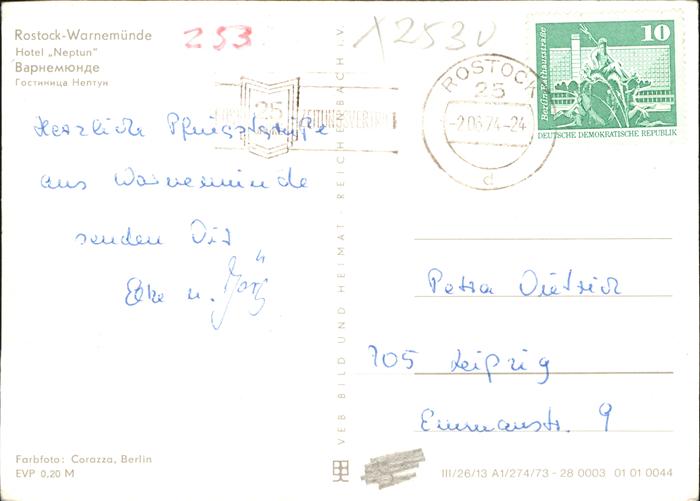 Rostock-Warnemünde
Hotel „Neptun"
Варнемюнде
Гостиница Нептун
253
X 2530
ROSTOCK
25
-2.06.74-24
d
25
10
Berlin, Rathausstraße
DEUTSCHE DEMOKRATISCHE REPUBLIK
Herzliche Pfingstgrüße
aus Warnemünde
senden Dir
Elke u. Jörg
Petra Dietrich
705 Leipzig
Emmausstr. 9
VEB BILD UND HEIMAT · REICHENBACH I. V.
Farbfoto: Corazza, Berlin
EVP 0,20 M
III/26/13 A1/274/73 - 28 0003 01 01 0044